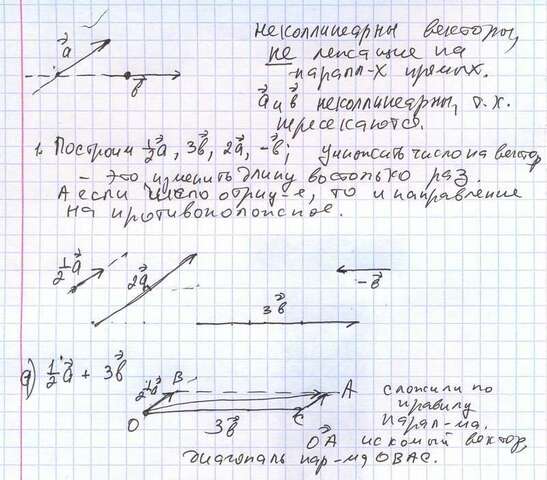 a⃗
b⃗
Неколлинеарны векторы,
не лежащие на
паралл-х прямых.
a⃗ и b⃗ неколлинеарны, т.к.
пересекаются.
1. Построим ½a⃗, 3b⃗, 2a⃗, -b⃗; умножить число на вектор
- это изменить длину во столько раз.
А если число отриц-е, то и направление
на противоположное.
½a⃗
2a⃗
3b⃗
-b⃗
а) ½a⃗ + 3b⃗
½a⃗
B
A
O
3b⃗
C
сложили по
правилу
парал-ма.
OA⃗ искомый вектор,
диагональ пар-ма OBAC.